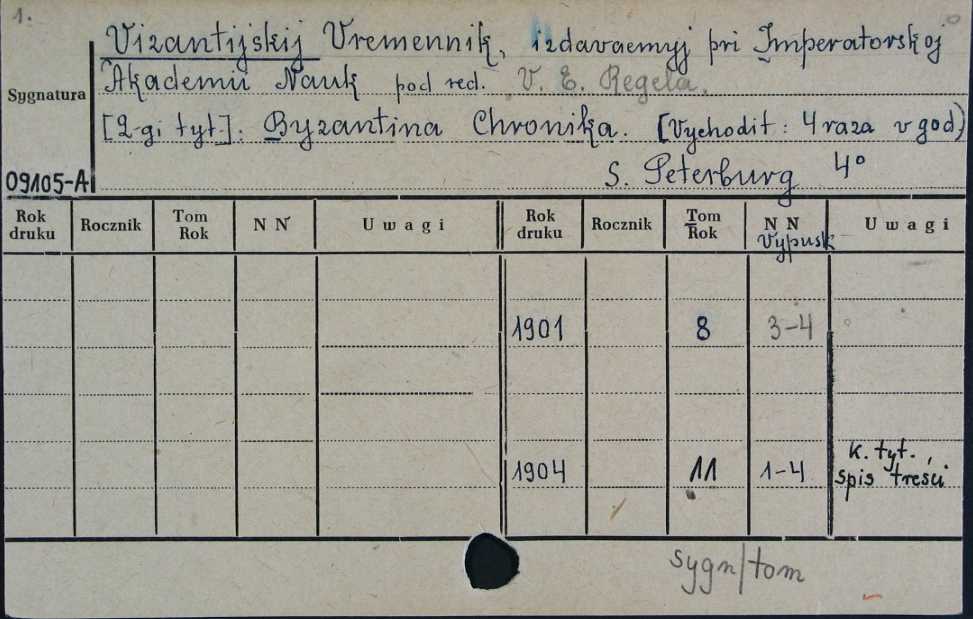 1.
Vizantijskij Vremennik, izdavaemyj pri Imperatorskoj
Akademii Nauk pod red. V. E. Regela.
Sygnatura
[2-gi tyt.]: Byzantina Chronika. [Vychodit: 4 raza v god)
09105-A S. Peterburg 4°
Rok druku Rocznik Tom Rok N N Uwagi Rok druku Rocznik Tom Rok N N Vypusk Uwagi
1901 8 3-4
1904 11 1-4 k. tyt., spis treści
sygn/tom